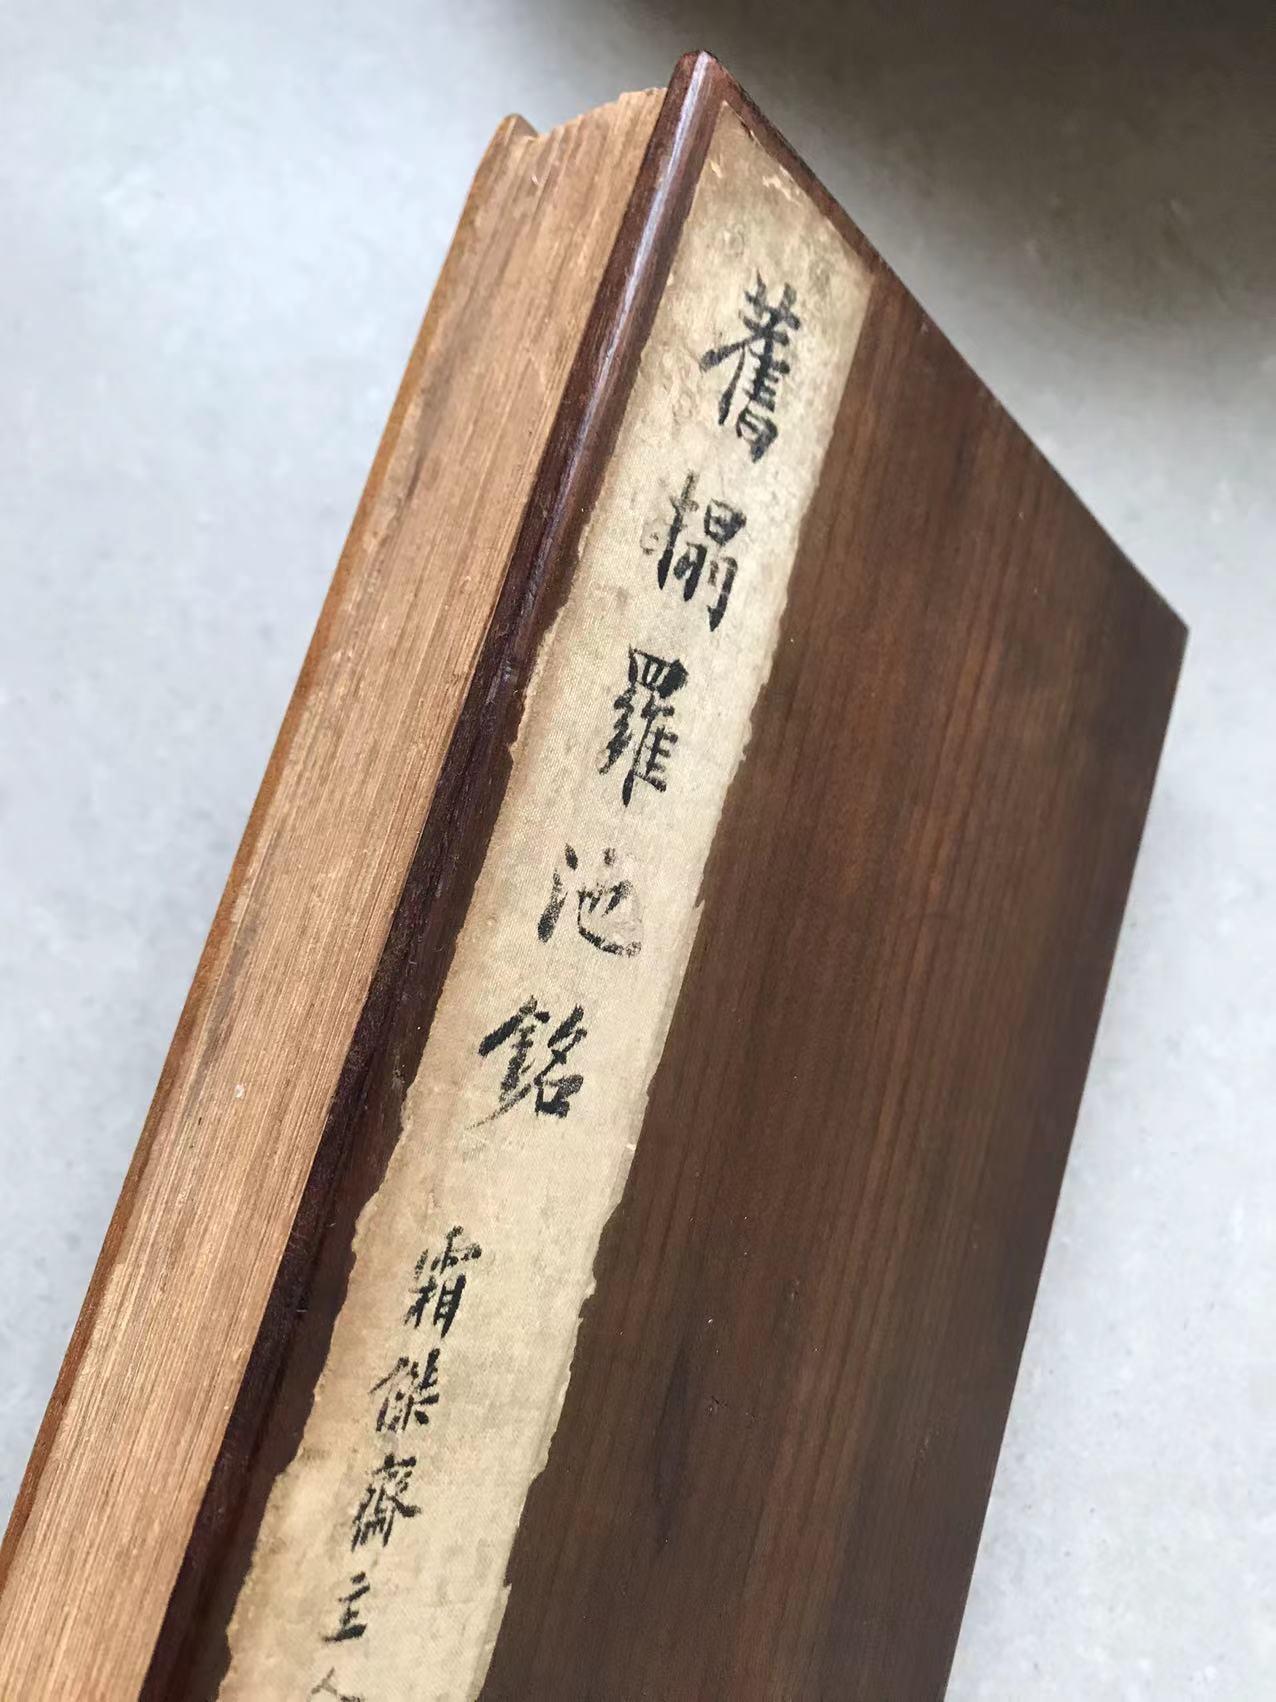 舊搨羅池銘
霜傑齋主人